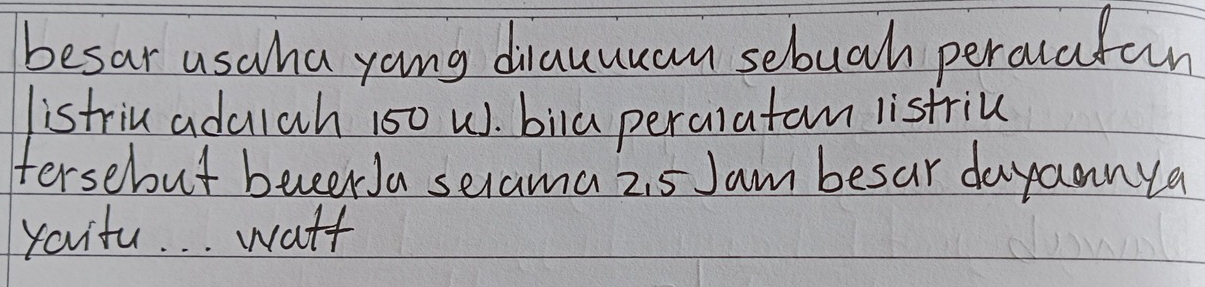 besar usaha yang dilakukan sebuah peralatan
listrik adalah 150 kJ. bila peralatan listrik
tersebut bekerja selama 2,5 Jam besar dayannya
yaitu... watt